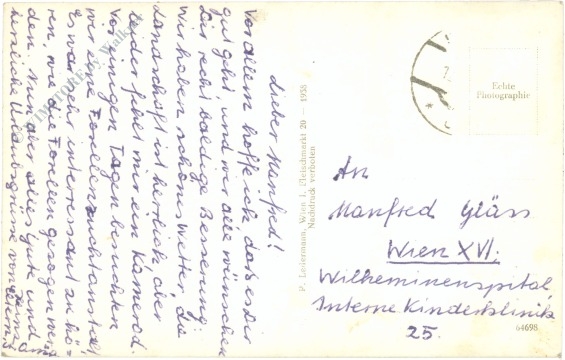 Lieber Manfred!
Vor allem hoffe ich, daß es Dir
gut geht, und wir alle wünschen
Dir recht baldige Besserung.
Wir haben schönes Wetter, die
Landschaft ist herrlich, aber
leider fehlt mir ein Kamerad.
Vor einigen Tagen besuchten
wir eine Forellenzuchtanstalt
Es war sehr interressant zu hö=
ren, wie die Forellen gezogen wer=
den. Nun aber alles Gute und
herzliche Urlaubsgrüsse von
P. Ledermann, Wien I, Fleischmarkt 20 — 1958
Nachdruck verboten
Echte
Photographie
An
Manfred Gläss
Wien XVI.
Wilheminenspital
Interne Kinderklinik
25.
64698